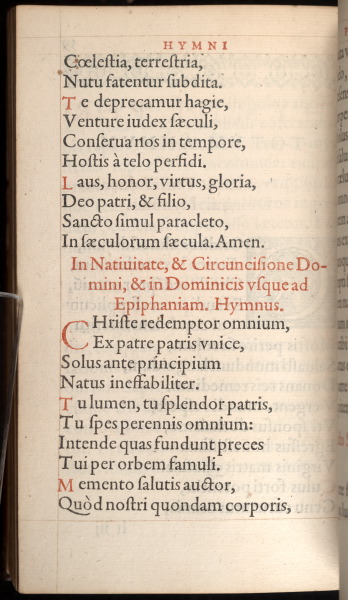 HYMNI
Cœleſtia, terreſtria,
Nutu fatentur ſubdita.
Te deprecamur hagie,
Venture iudex ſæculi,
Conſerua nos in tempore,
Hoſtis à telo perfidi.
Laus, honor, virtus, gloria,
Deo patri, & filio,
Sancto ſimul paracleto,
In ſæculorum ſæcula. Amen.
In Natiuitate, & Circunciſione Do-
mini, & in Dominicis vſque ad
Epiphaniam. Hymnus.
CHriſte redemptor omnium,
Ex patre patris vnice,
Solus ante principium
Natus ineffabiliter.
Tu lumen, tu ſplendor patris,
Tu ſpes perennis omnium:
Intende quas fundunt preces
Tui per orbem famuli.
Memento ſalutis auctor,
Quòd noſtri quondam corporis,